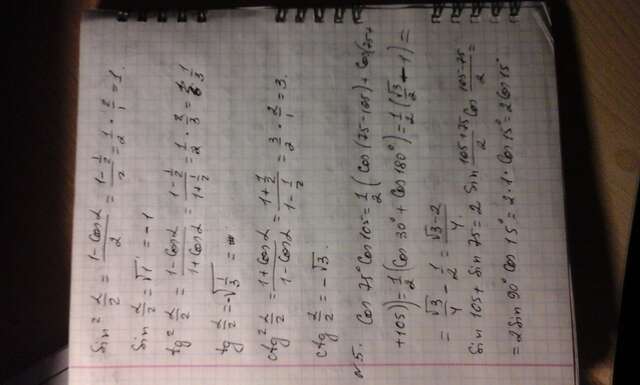 sin² α/2 = (1-cos α)/2 = (1-1/2)/2 = 1/2 · 2/1 = 1.
sin α/2 = √1 = -1
tg² α/2 = (1-cos α)/(1+cos α) = (1-1/2)/(1+1/2) = 1/2 · 2/3 = 1/3
tg α/2 = -√(1/3) =
ctg² α/2 = (1+cos α)/(1-cos α) = (1+1/2)/(1-1/2) = 3/2 · 2/1 = 3.
ctg α/2 = -√3.
№5. cos 75° cos 105 = 1/2 (cos (75-105) + cos(75+
+105)) = 1/2 (cos 30° + cos 180°) = 1/2 (√3/2 - 1) =
= √3/4 - 1/2 = (√3-2)/4.
Sin 105 + sin 75 = 2 sin (105+75)/2 cos (105-75)/2 =
= 2 sin 90° cos 15° = 2·1· cos 15° = 2 cos 15°